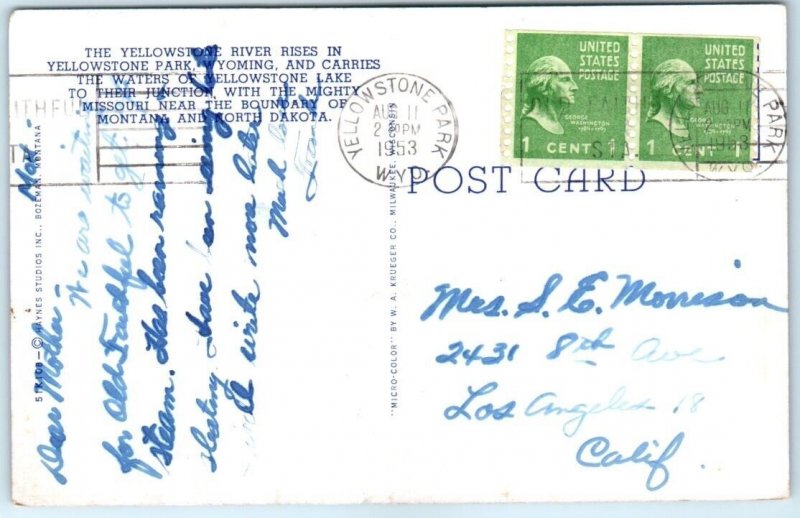 THE YELLOWSTONE RIVER RISES IN
YELLOWSTONE PARK, WYOMING, AND CARRIES
THE WATERS OF YELLOWSTONE LAKE
TO THEIR JUNCTION WITH THE MIGHTY
MISSOURI NEAR THE BOUNDARY OF
MONTANA AND NORTH DAKOTA.
Mon-
Dear Mother-
We are waiting
for Old Faithful to get up
steam. Has been raining &
sleeting. Have been seeing
will write more later
Much love
51K108—© HAYNES STUDIOS INC., BOZEMAN, MONTANA
"MICRO-COLOR" BY W. A. KRUEGER CO., MILWAUKEE, WISCONSIN
POST CARD
YELLOWSTONE PARK
AUG 11
PM
1953
WYO
UNITED
STATES
POSTAGE
GEORGE
WASHINGTON
1789-1797
1 CENT 1
UNITED
STATES
POSTAGE
GEORGE
WASHINGTON
1 CENT 1
PARK
AUG 11
PM
1953
WYO
Mrs. S. E. Morrison
2431 8th Ave
Los Angeles 18
Calif.